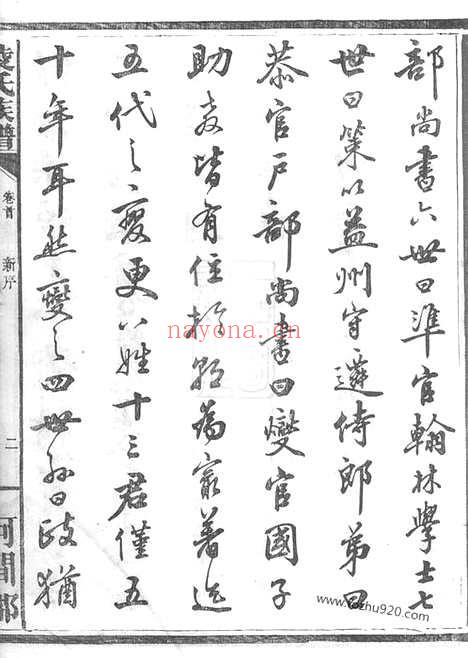 部尚書六世曰準官翰林學士七
世曰策以益州守遷侍郎弟曰
恭官戶部尚書曰燮官國子
助教皆有住於朝為最著迄
五代之變更八姓十三君僅五
十年耳然變之四世孫曰政猶
凌氏族譜
卷首 新序
二
河間郡
nayona.cn
www.tcshu920.com